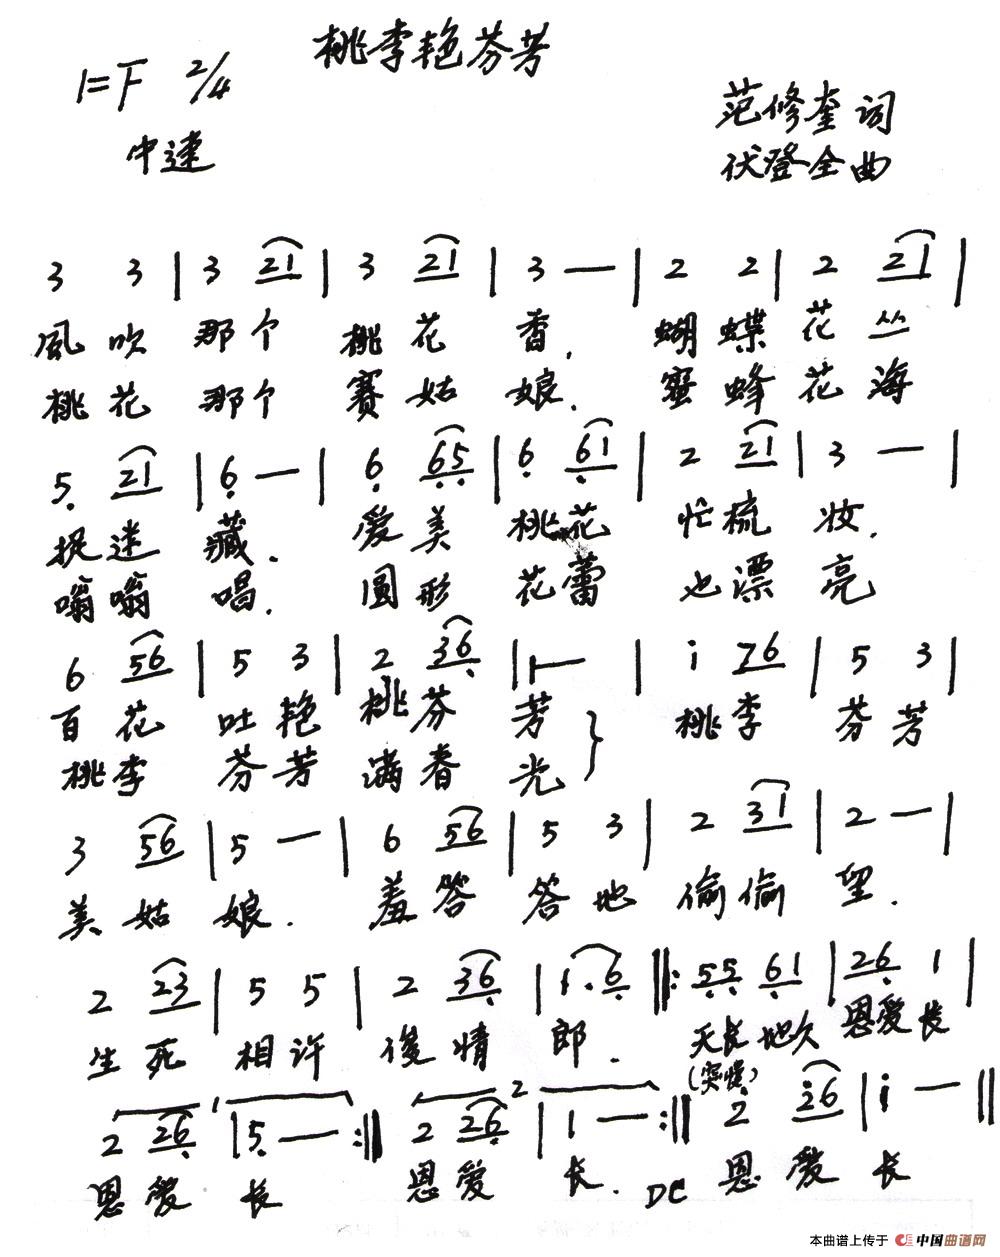 桃李艳芬芳
1=F 2/4
中速
范修奎 词
伏登全 曲
3 3 | 3 21 | 3 21 | 3 — | 2 2 | 2 21 |
風吹 那个 桃花 香. 蝴蝶 花丛
桃花 那个 赛姑 娘. 蜜蜂 花海
5 21 | 6 — | 6 65 | 6 61 | 2 21 | 3 — |
捉迷 藏. 爱美 桃花 忙梳 妆.
嗡嗡 唱. 圆形 花蕾 也漂 亮
6 56 | 5 3 | 2 36 | 1 — | i 76 | 5 3 |
百花 吐艳 桃芬 芳 } 桃李 芬芳
桃李 芬芳 满春 光
3 56 | 5 — | 6 56 | 5 3 | 2 31 | 2 — |
美姑 娘. 羞答 答地 偷偷 望.
2 23 | 5 5 | 2 36 | 1. 6 ‖: 55 61 | 26 1 |
生死 相许 俊情 郎. 天长地久 恩爱长
(突慢)
1 2
2 26 | 5 — :‖ 2 26 | 1 — :‖ 2 26 | i — ‖
恩爱 长 恩爱 长. DC 恩爱 长
本曲谱上传于 中国曲谱网